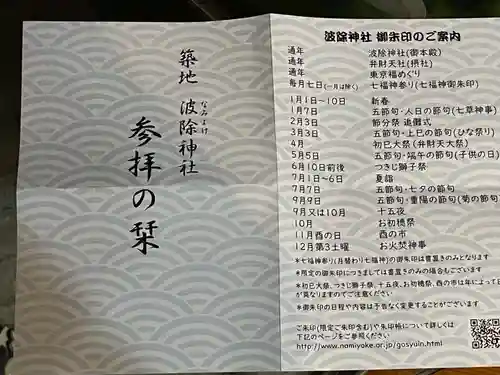 築地 波除神社
なみよけ
参拝の栞
波除神社 御朱印のご案内
通年 波除神社(御本殿)
通年 弁財天社(摂社)
通年 東京福めぐり
毎月七日(一月は除く) 七福神参り(七福神御朱印)
1月1日〜10日 新春
1月7日 五節句・人日の節句(七草神事)
2月3日 節分祭 追儺式
3月3日 五節句・上巳の節句(ひな祭り)
4月 初巳大祭(弁財天大祭)
5月5日 五節句・端午の節句(子供の日)
6月10日前後 つきじ獅子祭
7月1日〜6日 夏詣
7月7日 五節句・七夕の節句
9月9日 五節句・重陽の節句(菊の節句
9月又は10月 十五夜
10月 お初穂祭
11月酉の日 酉の市
12月第3土曜 お火焚神事
*七福神参り(月替わり七福神)の御朱印は書置きのみとなります
*限定の御朱印につきましては書置きのみの場合もございます
*初巳大祭、つきじ獅子祭、十五夜、お初穂祭、酉の市は年によって日
が異なりますのでご注意ください
*御朱印の日程や内容は予告なく変更することがございます
ご朱印(限定ご朱印含む)や朱印帳について詳しくは
下記のページをご参照ください
http://www.namiyoke.or.jp/gosyuin.html